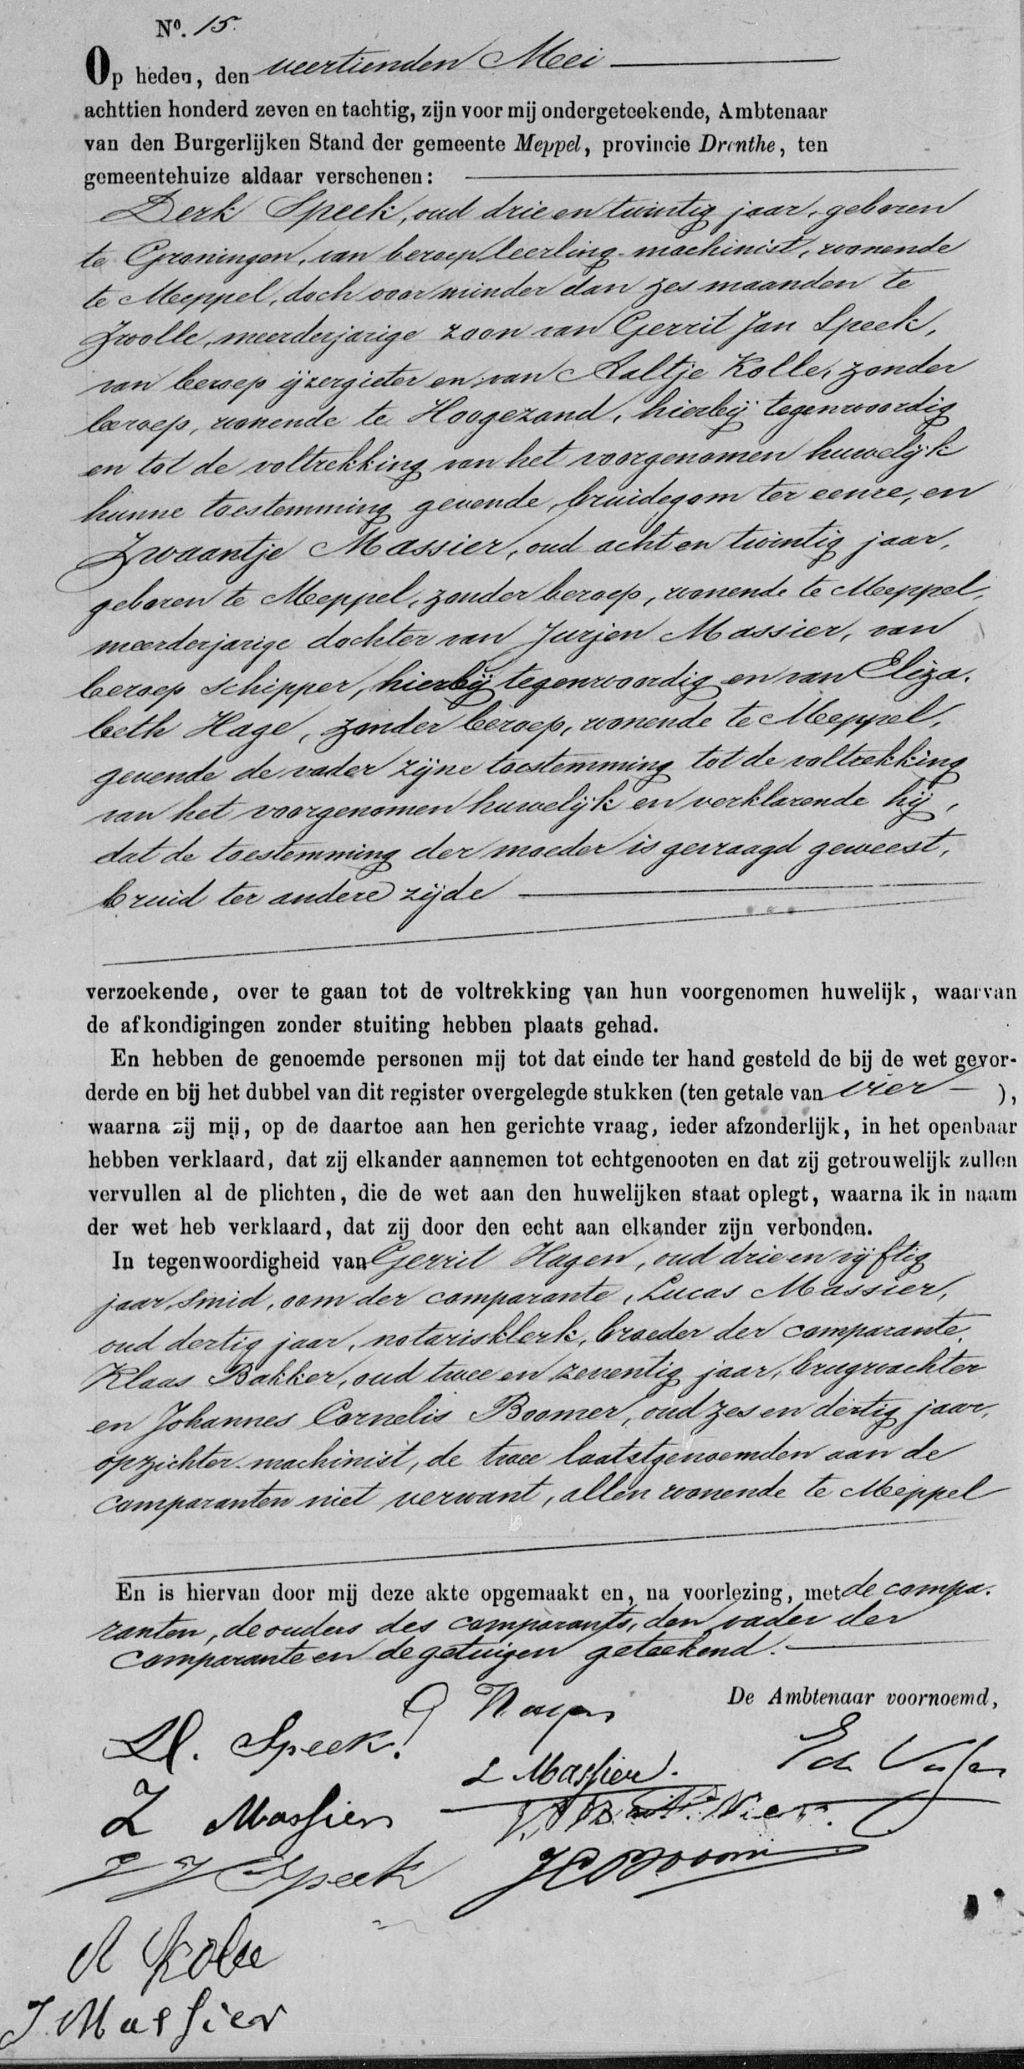 Nº. 15.
Op heden, den veertienden Mei
achttien honderd zeven en tachtig, zijn voor mij ondergeteekende, Ambtenaar
van den Burgerlijken Stand der gemeente Meppel, provincie Drenthe, ten
gemeentehuize aldaar verschenen:
Derk Speek, oud drie en twintig jaar, geboren
te Groningen, van beroep leerling-machinist, wonende
te Meppel, doch voor minder dan zes maanden te
Zwolle, meerderjarige zoon van Gerrit Jan Speek,
van beroep ijzergieter en van Aaltje Kolle, zonder
beroep, wonende te Hoogezand, hierbij tegenwoordig
en tot de voltrekking van het voorgenomen huwelijk
hunne toestemming gevende, bruidegom ter eenre, en
Zwaantje Massier, oud acht en twintig jaar,
geboren te Meppel, zonder beroep, wonende te Meppel,
meerderjarige dochter van Jurjen Massier, van
beroep schipper, hierbij tegenwoordig en van Eliza-
beth Hage, zonder beroep, wonende te Meppel,
gevende de vader zijne toestemming tot de voltrekking
van het voorgenomen huwelijk en verklarende hij,
dat de toestemming der moeder is gevraagd geweest,
bruid ter andere zijde
verzoekende, over te gaan tot de voltrekking van hun voorgenomen huwelijk, waarvan
de afkondigingen zonder stuiting hebben plaats gehad.
En hebben de genoemde personen mij tot dat einde ter hand gesteld de bij de wet gevor-
derde en bij het dubbel van dit register overgelegde stukken (ten getale van vier),
waarna zij mij, op de daartoe aan hen gerichte vraag, ieder afzonderlijk, in het openbaar
hebben verklaard, dat zij elkander aannemen tot echtgenooten en dat zij getrouwelijk zullen
vervullen al de plichten, die de wet aan den huwelijken staat oplegt, waarna ik in naam
der wet heb verklaard, dat zij door den echt aan elkander zijn verbonden.
In tegenwoordigheid van Gerrit Hagen, oud drie en vijftig
jaar, smid, oom der comparante, Lucas Massier,
oud dertig jaar, notarisklerk, broeder der comparante,
Klaas Bakker, oud twee en zeventig jaar, brugwachter
en Johannes Cornelis Boomer, oud zes en dertig jaar,
opzichter-machinist, de twee laatstgenoemden aan de
comparanten niet verwant, allen wonende te Meppel
En is hiervan door mij deze akte opgemaakt en, na voorlezing, met de compa-
ranten, de ouders des comparants, den vader der
comparante en de getuigen geteekend.
De Ambtenaar voornoemd,
G Hagen
D. Speek.
L Massier.
Z Massier
G J Speek
A Kolle
J. Massier